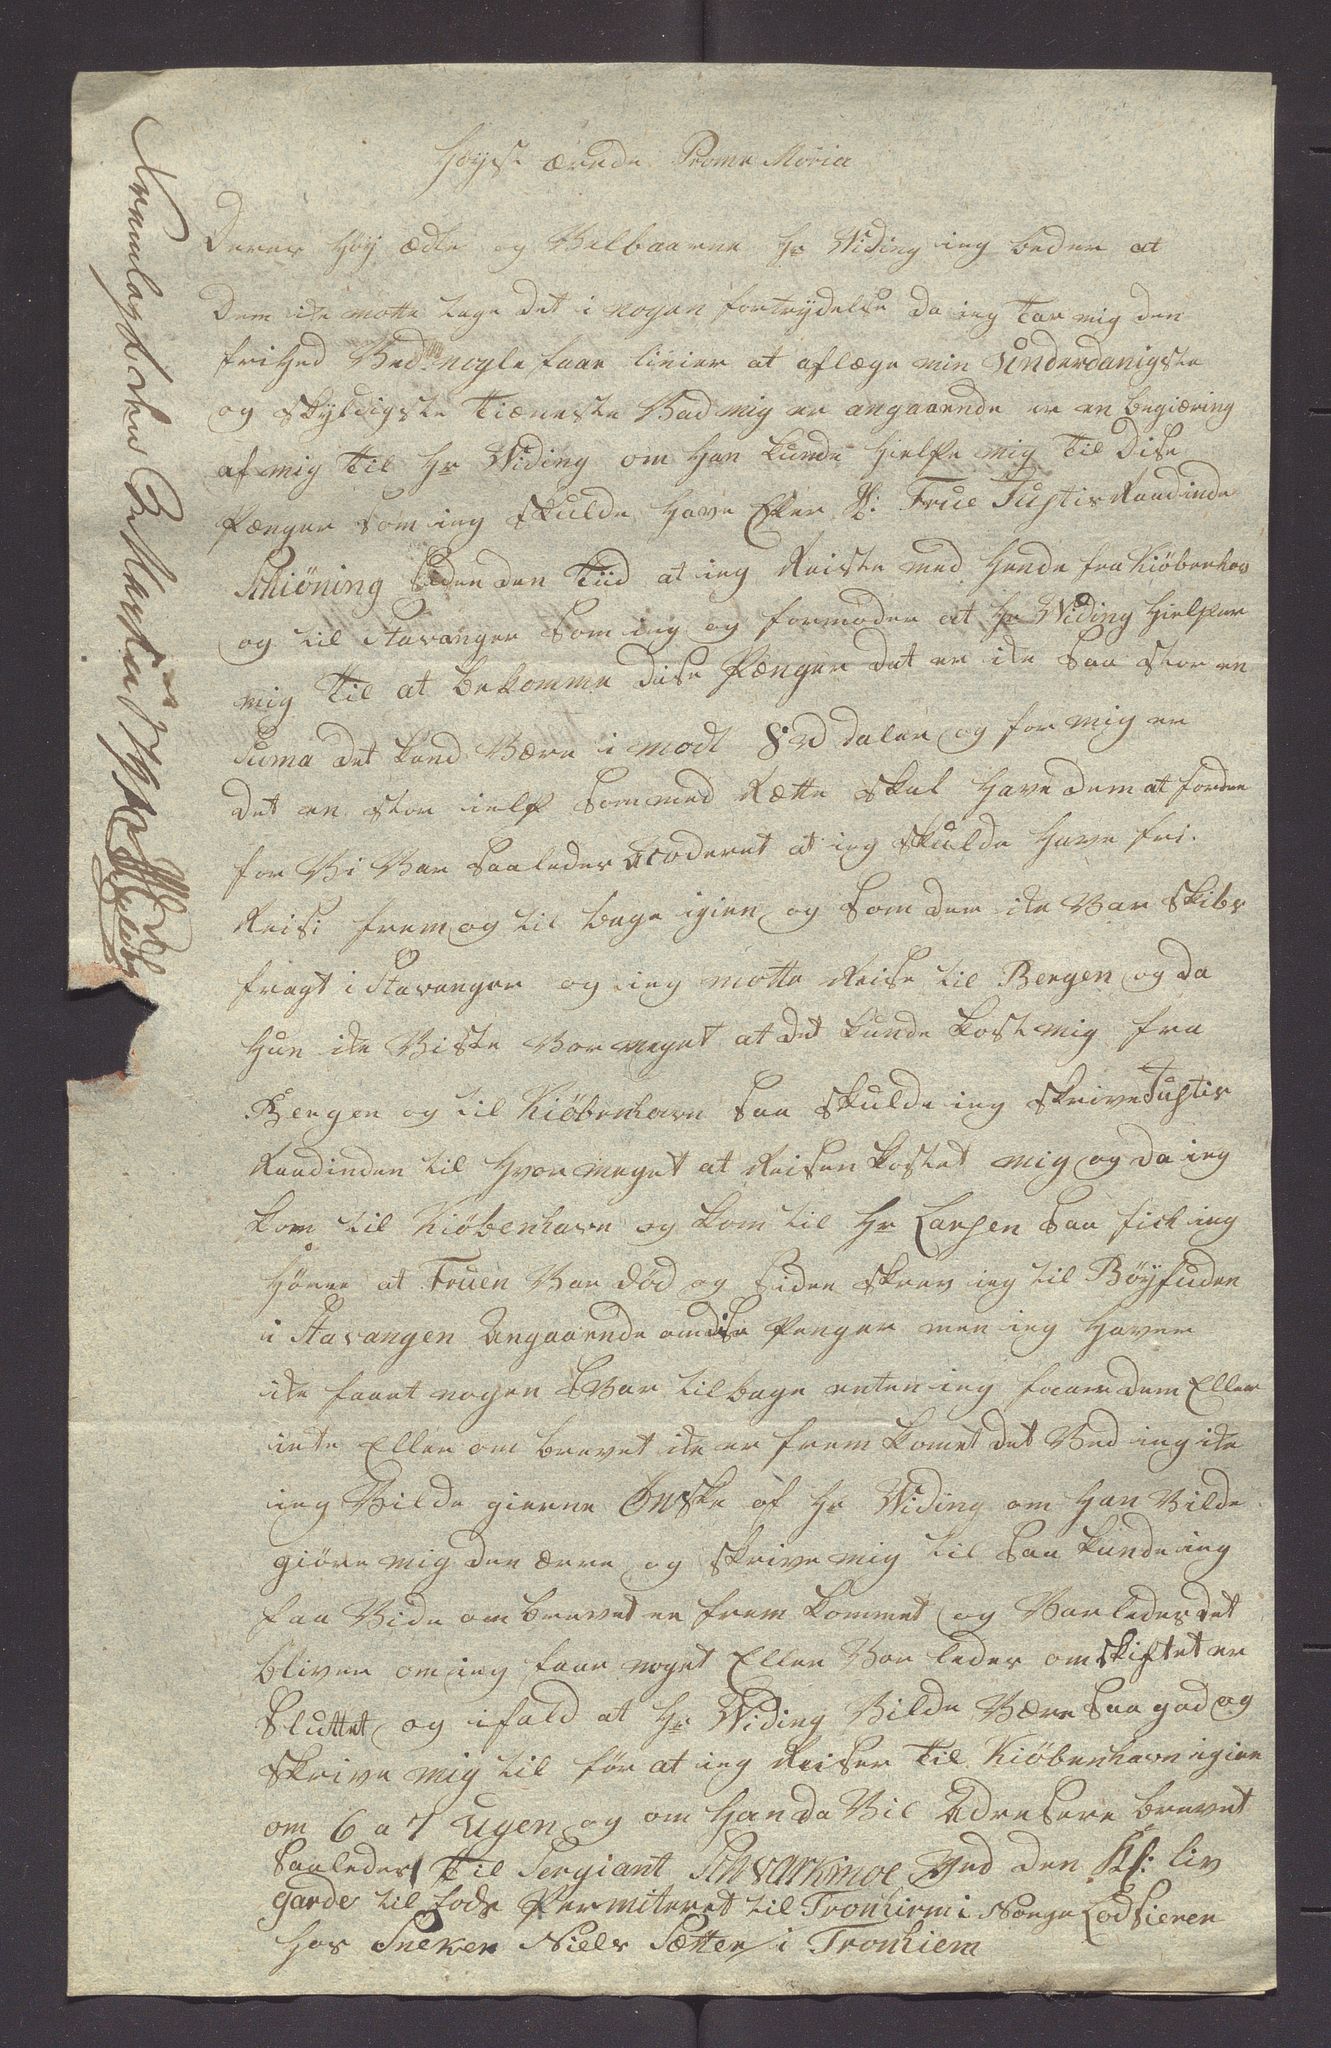 Høyst ærede Prome Moria
Deres Høy ædle og Velbaarne Hr Widing ieg beder at
Dem ike motte tage det i nogen fortrydelse da ieg tar mig den
frihed Ved nogle faae linier at aflæge min Underdanigste
og skyldigste tiæneste Vad mig er angaaende er en begiæring
af mig til Hr Widing om Han kunde hielpe mig til dise
Pænger som ieg skulde Have Efter Sl: Frue Justis Raadinde
Schiöning siden den tiid at ieg Reiste med Hende fra Kiöbenhav
og til Stavanger som ieg og formoder at Hr Widing hielper
mig til at bekomme dise Pænger det er ike saa stor en
Suma det kand Være i modt 8 rd daler og for mig er
det en stor ielp som med Rætte skal Have dem at fordre
for Vi Var saaledes acoderet at ieg skulde Have fri
Reise frem og til bage igien og som der ike Var skibs
fragt i Stavanger og ieg motte Reise til Bergen og da
Hun ike Viste Vor meget at det kunde kost mig fra
Bergen og til Kiöbenhavn saa skulde ieg skrive Justis
Raadinden til Hvor meget at Reisen kostet mig og da ieg
kom til Kiöbenhavn og kom til Hr Larsen saa fick ieg
Hörre at Fruen Var död og siden skrev ieg til Böyfuden
i Stavangen Angaaende om dise Penger men ieg Haver
ike faaet nogen Svar tilbage enten ieg faaer dem Eller
inte Eller om brevet ike er frem komet det Ved ieg ike
ieg Vilde gierne Önske af Hr Widing om Han Vilde
giöre mig den ærre og skrive mig til saa kunde ieg
faa Vide om brevet er frem kommet og Vorledes det
bliver om ieg faar noget Eller Vor ledes om skiftet er
sluttet og ifald at Hr Widing Vilde Være saa god og
skrive mig til för at ieg Reiser til Kiöbenhavn igien
om 6 a 7 Ugen og om Han da Vil Adresere brevet
saaledes til Sergiant Schvarkmoe Ved den Kl: liv
garde til fods Permiteret til Tronhiem i Norge Lodsieren
hos Sneker Niels Sætter i Tronhiem
Fremlagt